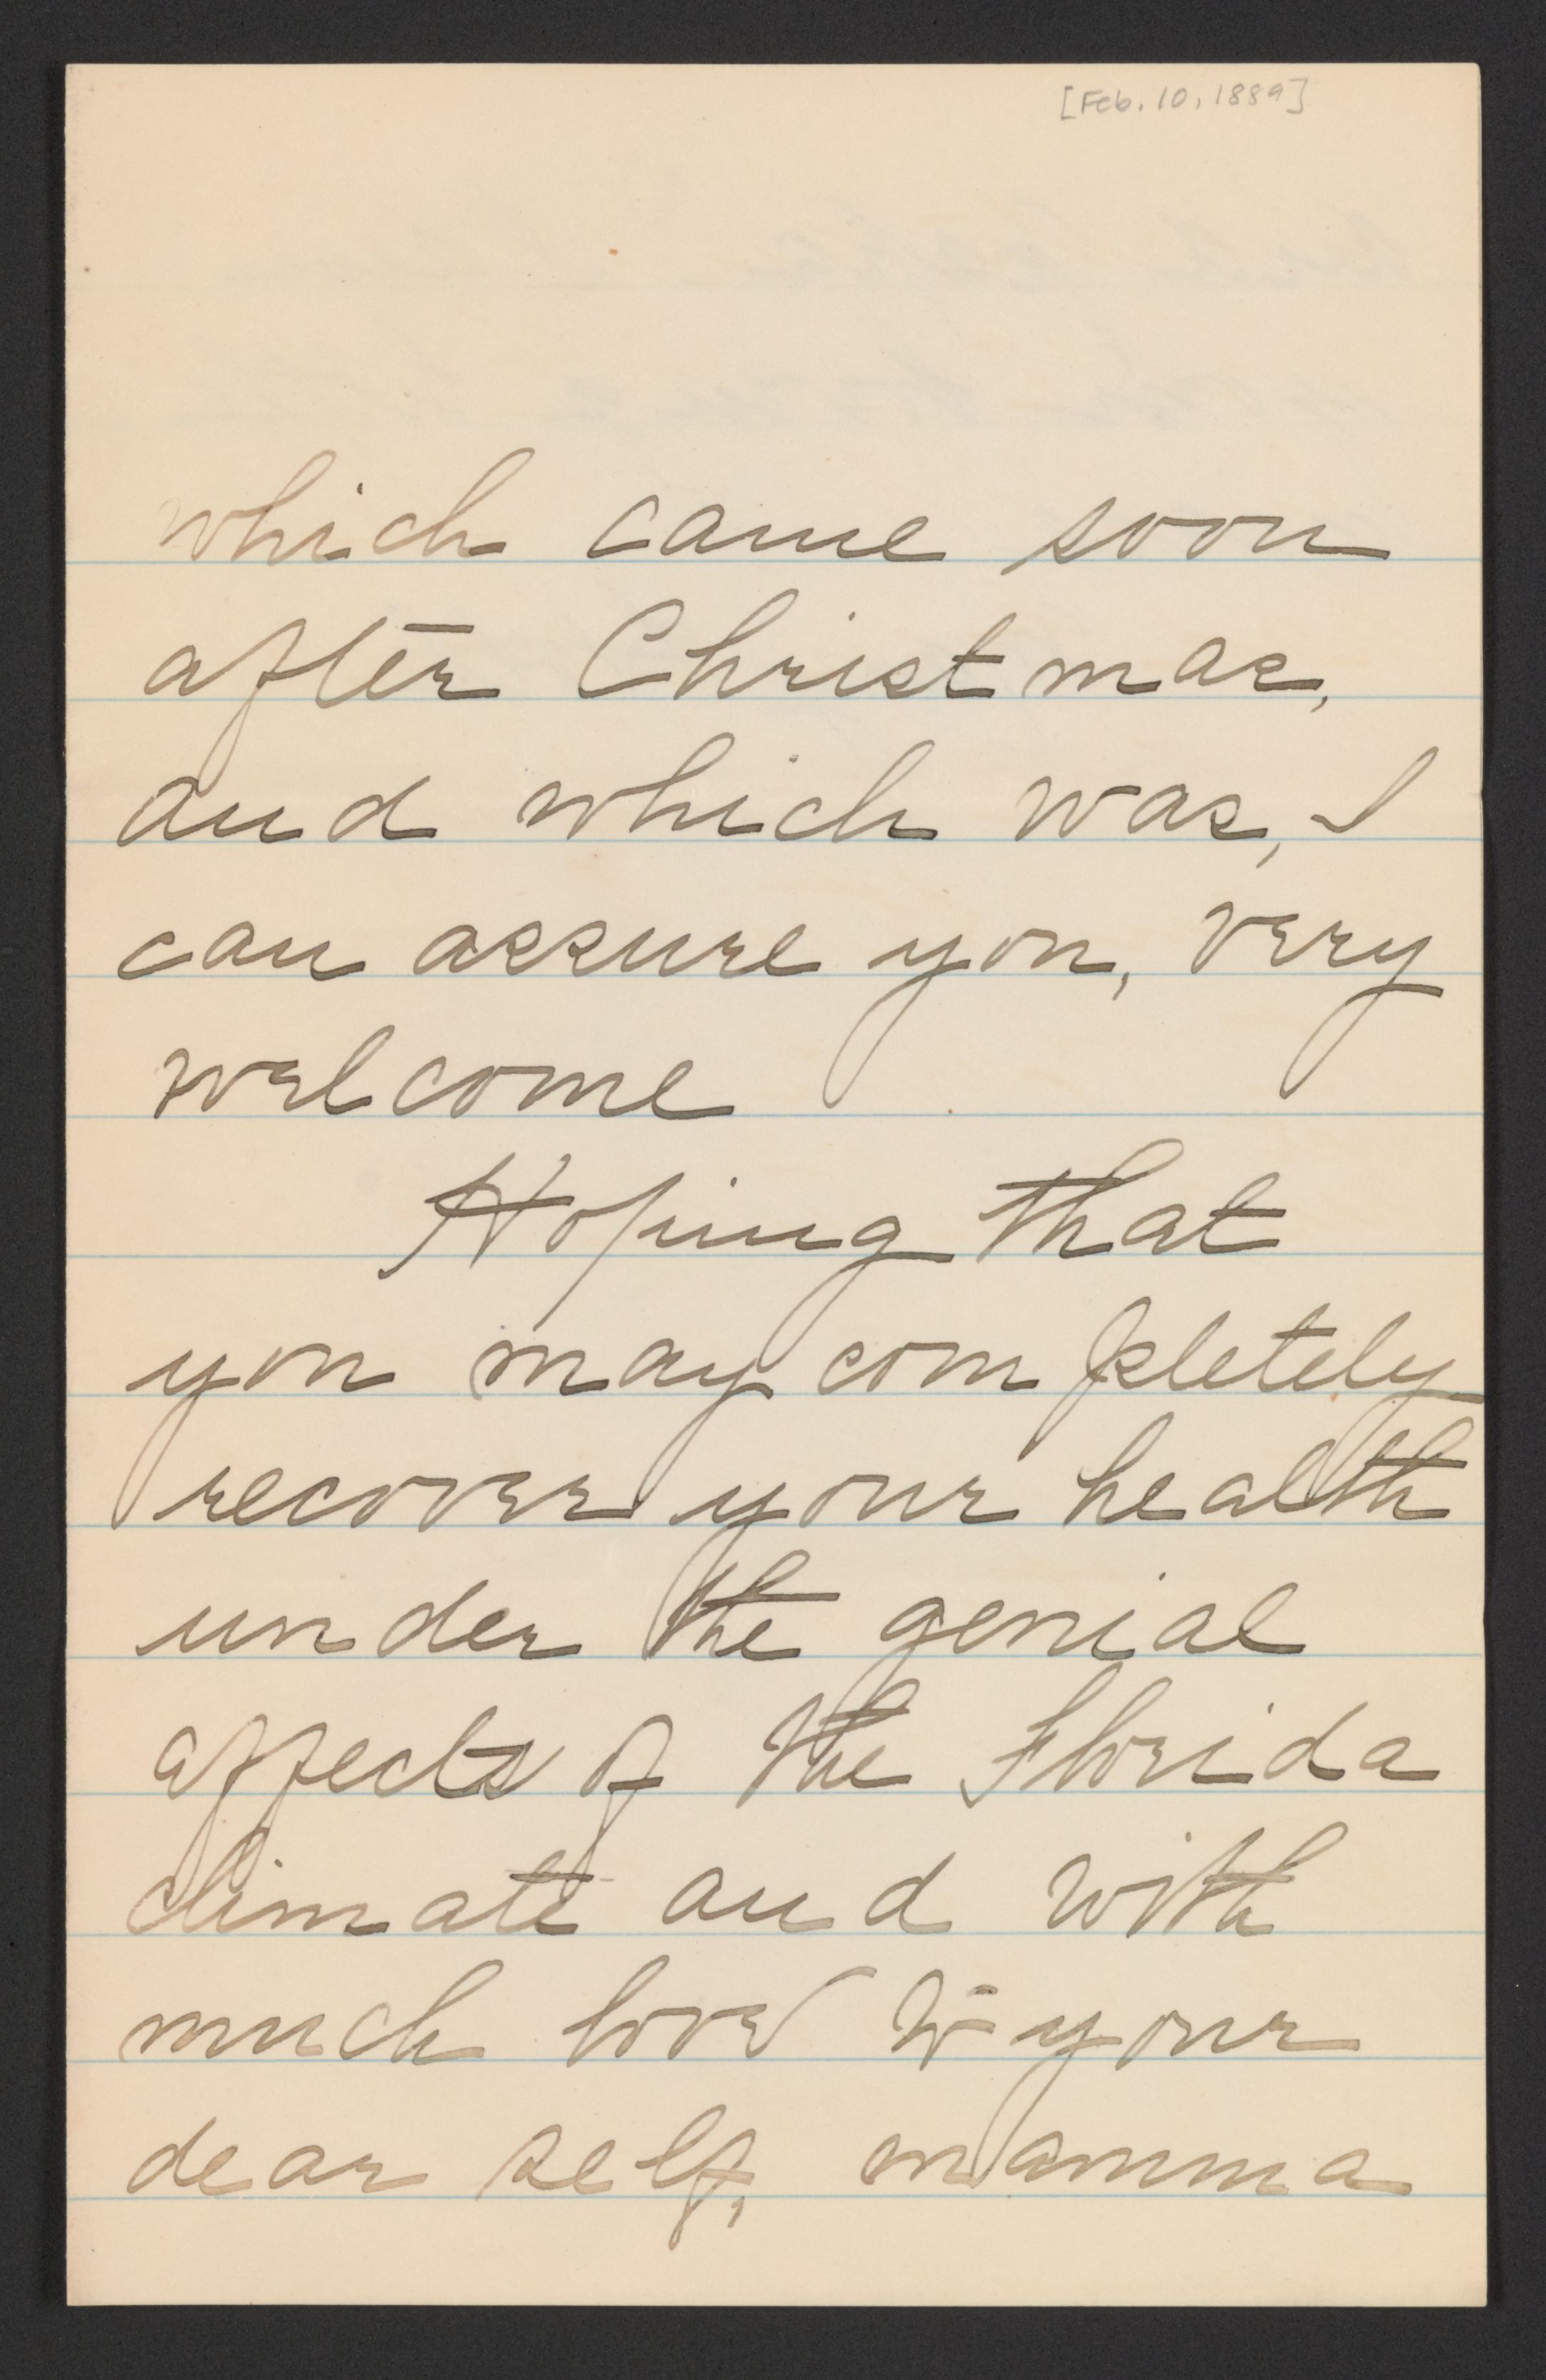 [Feb. 10, 1889]
which came soon
after Christmas,
and which was, I
can assure you, very
welcome
Hoping that
you may completely
recover your health
under the genial
affects of the Florida
climate and with
much love to your
dear self, mamma